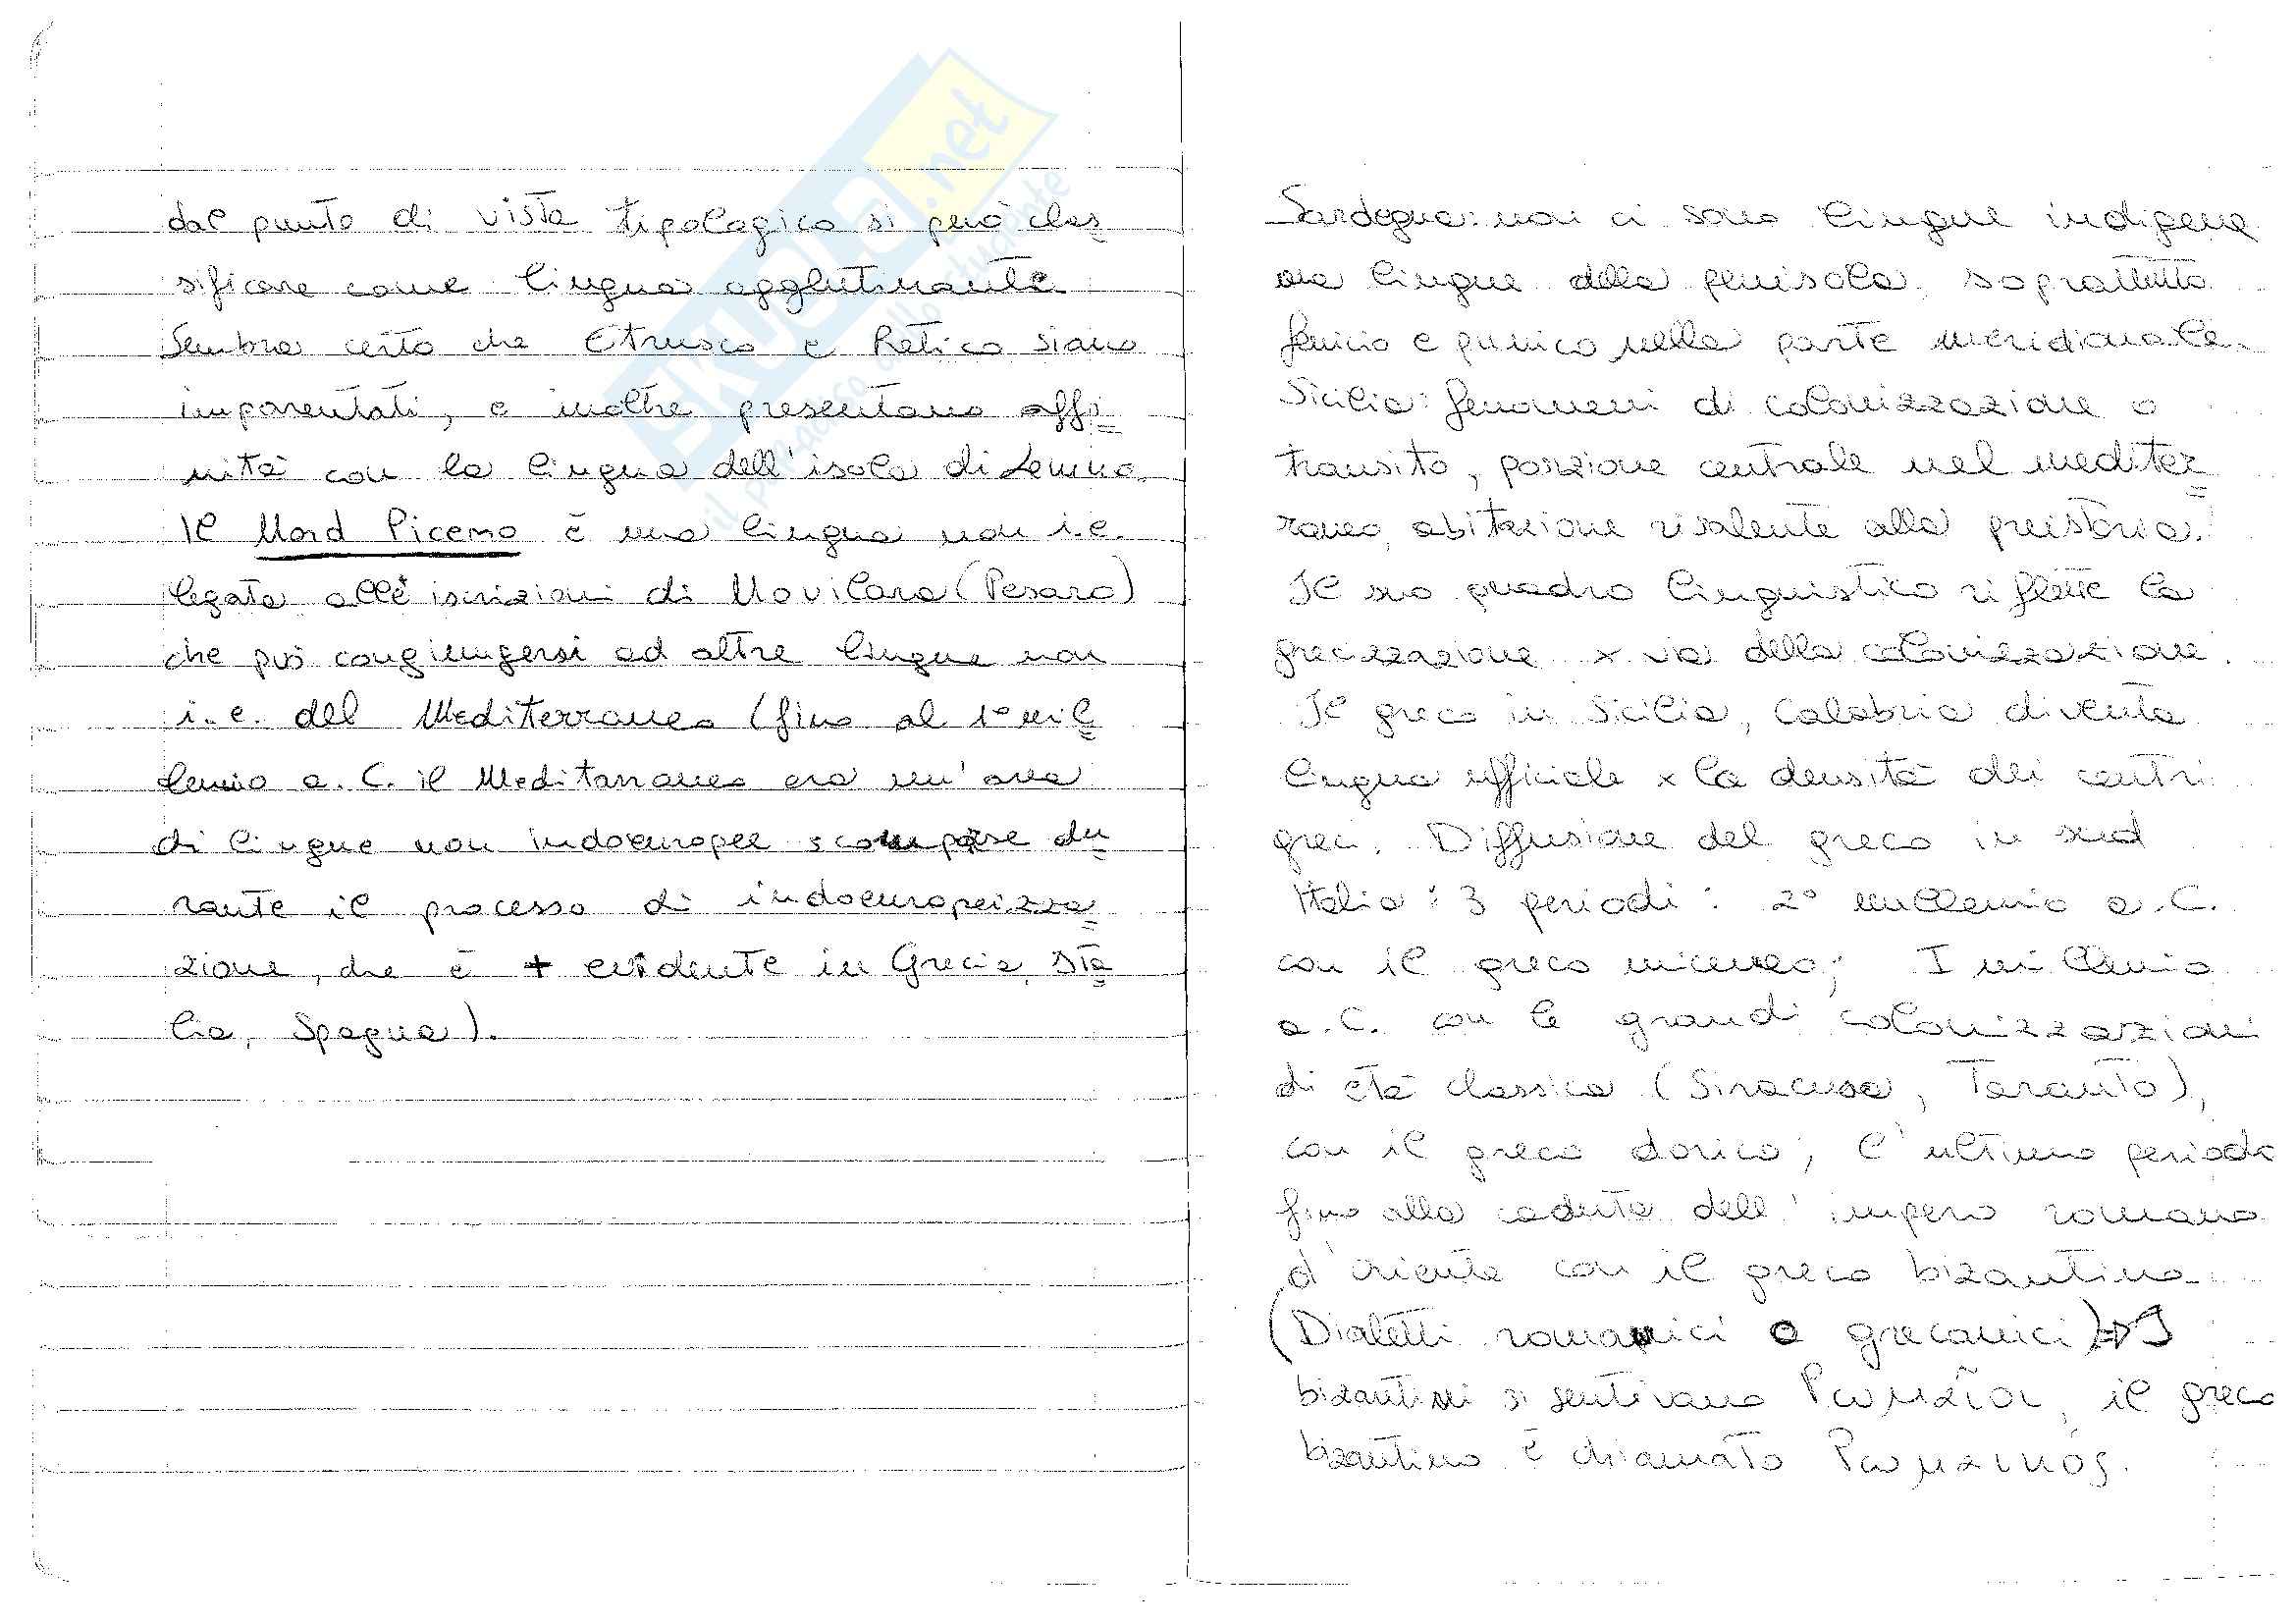 dal punto di vista tipologico si può clas
sificare come lingua agglutinante.
Sembra certo che Etrusco e Retico siano
imparentati, e inoltre presentano affi
nità con la lingua dell'isola di Lemno.
Il Nord Piceno è una lingua non i.e.
legata alle iscrizioni di Novilara (Pesaro)
che può congiungersi ad altre lingue non
i.e. del Mediterraneo (fino al 1° mil
lennio a.C. il Meditarraneo era un'area
di lingue non indoeuropee scomparse du
rante il processo di indoeuropeizza
zione, che è + evidente in Grecia, Ita
lia, Spagna).
Sardegna: non ci sono lingue indigene
ma lingue della penisola, soprattutto
fenicio e punico nella parte meridionale.
Sicilia: fenomeni di colonizzazione o
transito, posizione centrale nel mediter
raneo, abitazione risalente alla preistoria.
Il suo quadro linguistico riflette la
grecizzazione x via della colonizzazione.
Il greco in Sicilia, Calabria diventa
lingua ufficiale x la densità dei centri
greci. Diffusione del greco in sud
Italia: 3 periodi: 2° millennio a.C.
con il greco miceneo; I millennio
a.C. con le grandi colonizzazioni
di età classica (Siracusa, Taranto),
con il greco dorico; l'ultimo periodo
fino alla caduta dell'impero romano
d'oriente con il greco bizantino.
(Dialetti romanici o grecanici) => I
bizantini si sentivano Ρωμαῖοι, il greco
bizantino è chiamato
il primo della studente
.net